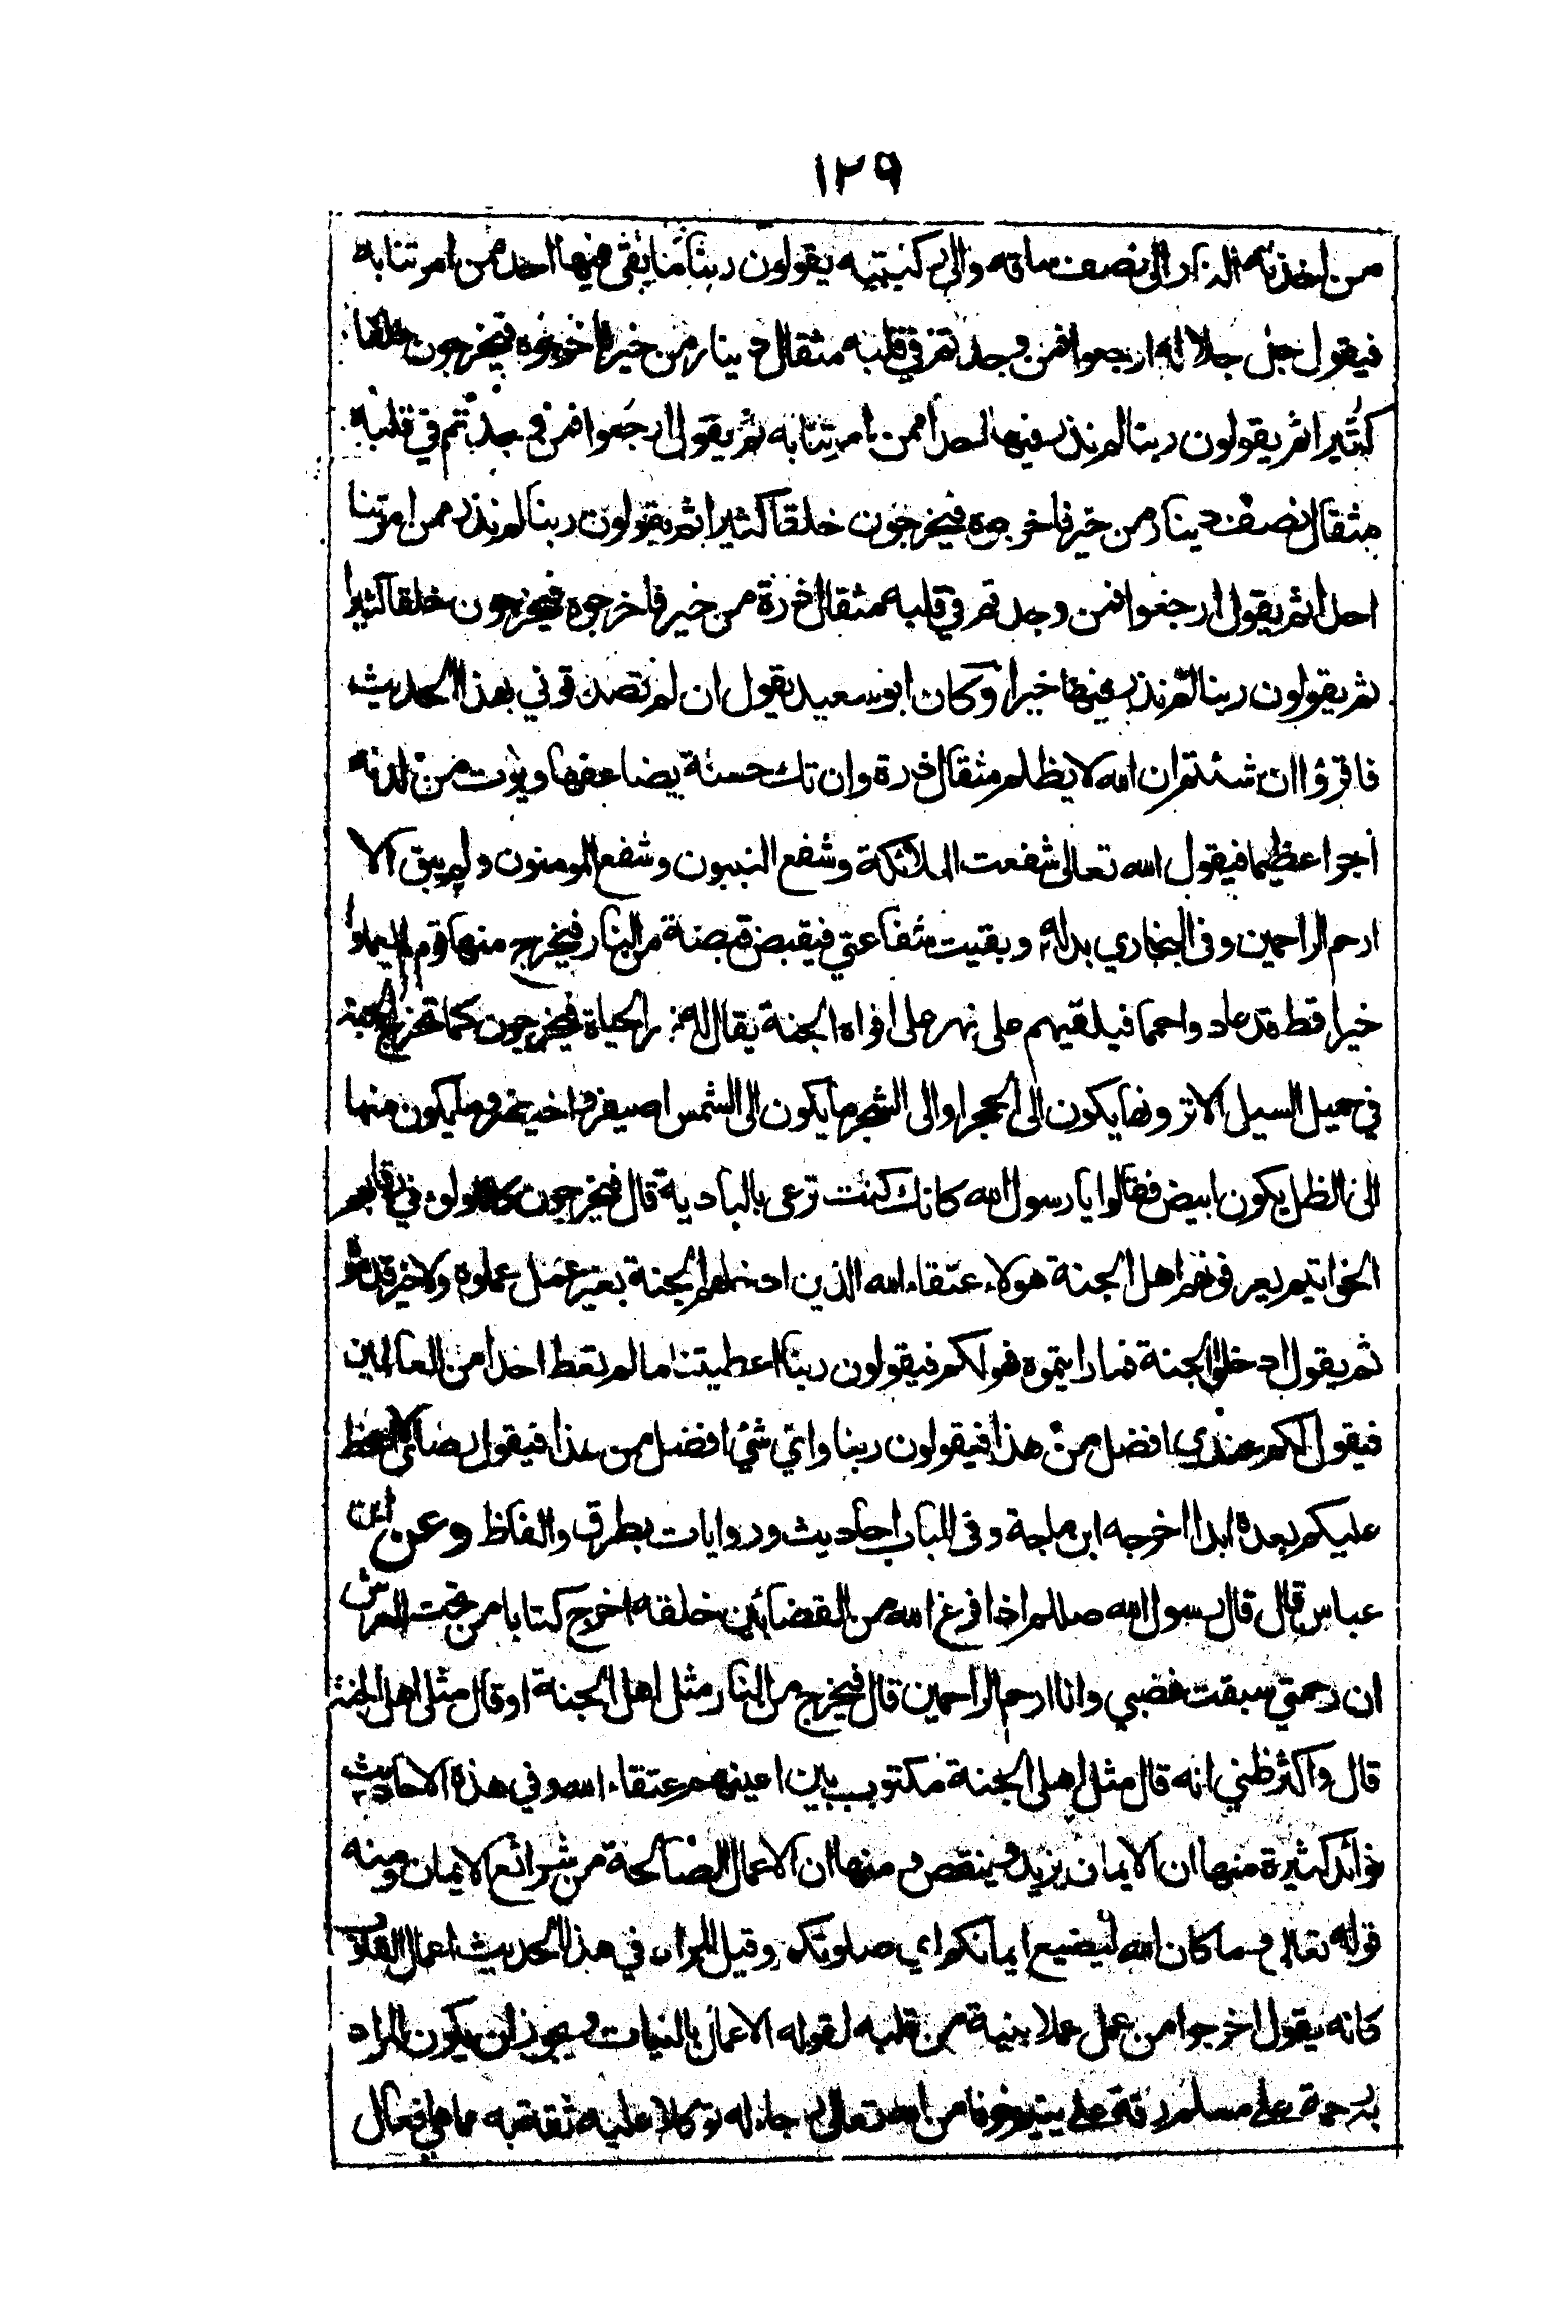 ١٢٩
من اخذته النار الى نصف ساقه والى ركبتيه يقولون ربنا ما بقي فيها احد ممن امرتنا به
فيقول جل جلاله ارجعوا فمن وجدتم في قلبه مثقال دينار من خير فاخرجوه فيخرجون خلقا
كثيرا ثم يقولون ربنا لم نذر فيها احدا ممن امرتنا به ثم يقول ارجعوا فمن وجدتم في قلبه
مثقال نصف دينار من خير فاخرجوه فيخرجون خلقا كثيرا ثم يقولون ربنا لم نذر ممن امرتنا
احدا ثم يقول ارجعوا فمن وجدتم في قلبه مثقال ذرة من خير فاخرجوه فيخرجون خلقا كثيرا
ثم يقولون ربنا لم نذر فيها خيرا وكان ابو سعيد يقول ان لم تصدقوني بهذا الحديث
فاقرؤا ان شئتم ان الله لا يظلم مثقال ذرة وان تك حسنة يضاعفها ويؤت من لدنه
اجرا عظيما فيقول الله تعالى شفعت الملائكة وشفع النبيون وشفع المومنون ولم يبق الا
ارحم الراحمين وفي البخاري بدله وبقيت شفاعتي فيقبض قبضة من النار فيخرج منها قوم لم يعملوا
خيرا قط قد عادوا حمما فيلقيهم على نهر على افواه الجنة يقال له نهر الحياة فيخرجون كما تخرج الحبة
في حميل السيل الا ترونها يكون الى الحجر او الى الشجر ما يكون الى الشمس اصيفر واخيضر وما يكون منها
الى الظل يكون ابيض فقالوا يا رسول الله كانك كنت ترعى بالبادية قال فيخرجون كاللولو في رقابهم
الخواتيم يعرفونهم اهل الجنة هولاء عتقاء الله الذين ادخلهم الجنة بغير عمل عملوه ولا خير قدموه
ثم يقول ادخلوا الجنة فما رايتموه فهو لكم فيقولون ربنا اعطيتنا ما لم تعط احدا من العالمين
فيقول لكم عندي افضل من هذا فيقولون ربنا واي شيء افضل من هذا فيقول رضائي لا اسخط
عليكم بعده ابدا اخرجه ابن ماجة وفي الباب احاديث وروايات بطرق والفاظ وعن ابن
عباس قال قال رسول الله صللم اذا فرغ الله من القضا بين خلقه اخرج كتابا من تحت العرش
ان رحمتي سبقت غضبي وانا ارحم الراحمين قال فيخرج من النار مثل اهل الجنة او قال مثلي اهل الجنة
قال واكثر ظني انه قال مثل اهل الجنة مكتوب بين اعينهم عتقاء الله وفي هذه الاحاديث
فوائد كثيرة منها ان الايمان يزيد وينقص ومنها ان الاعمال الصالحة من شرائع الايمان ومنه
قوله تعالى وما كان الله ليضيع ايمانكم اي صلوتكم وقيل المراد في هذا الحديث اعمال القلوب
كانه يقول اخرجوا من عمل عملا بنية من قلبه لقوله الاعمال بالنيات ويجوز ان يكون المراد
به رحمة على مسلم رقة على يتيم خوفا من الله تعالى رجاء له توكلا عليه ثقة به مما هي افعال